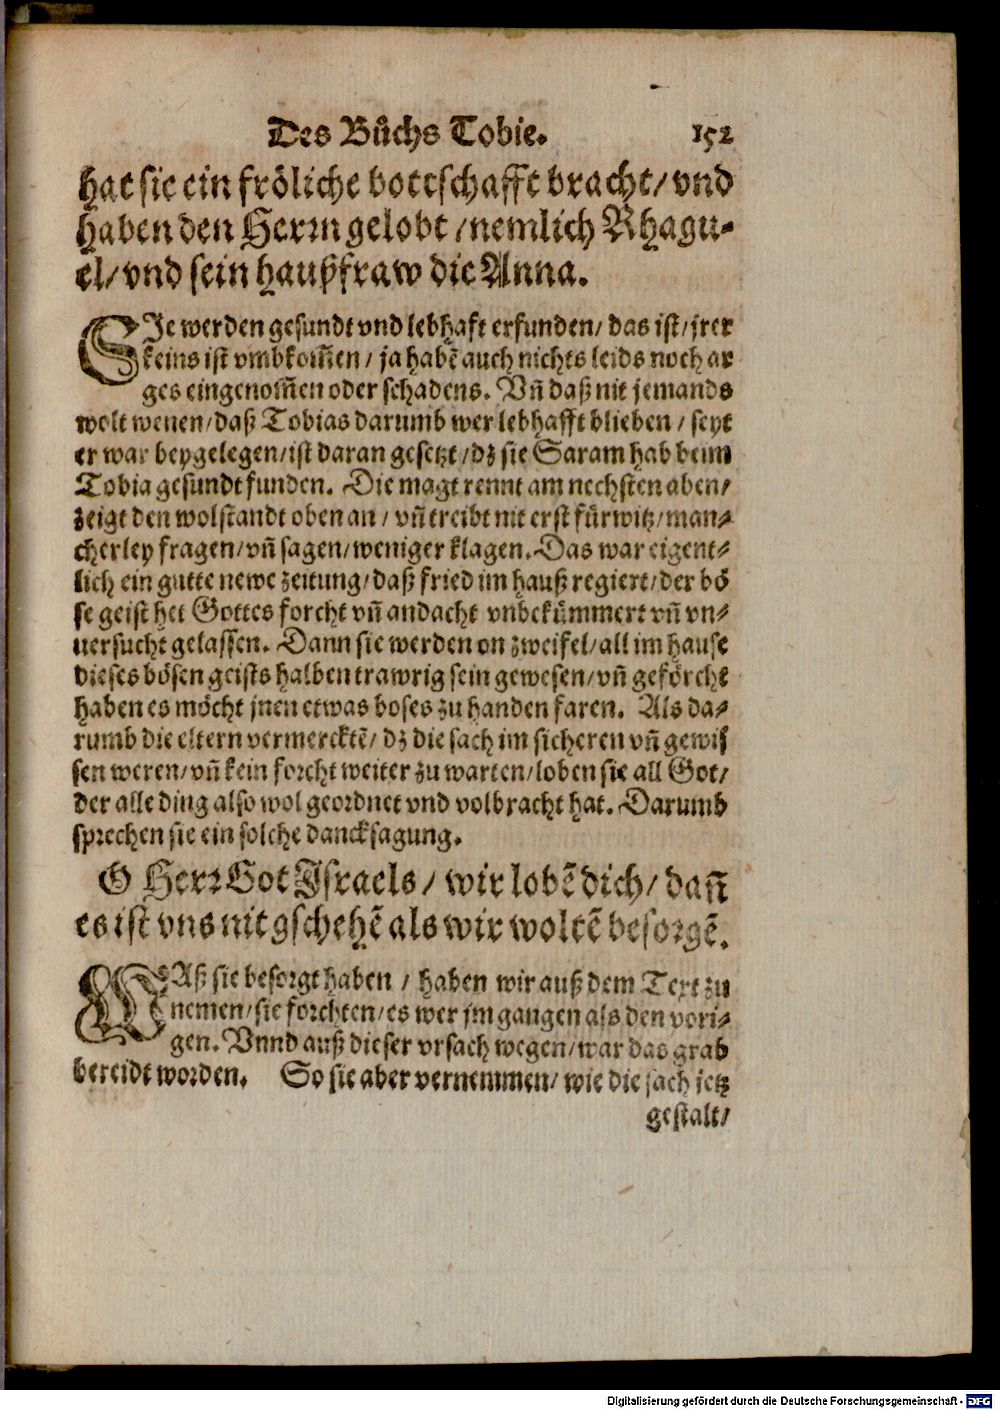 Des Bůchs Tobie. 152
hat sie ein fröliche bottschafft bracht/ vnd
haben den Herrn gelobt/ nemlich Rhagu-
el/ vnd sein haußfraw die Anna.
SJe werden gesundt vnd lebhaft erfunden/ das ist/ jrer
keins ist vmbkom̃en/ ja habē auch nichts leids noch ar
ges eingenom̃en oder schadens. Vñ daß nit jemands
wolt wenen/ daß Tobias darumb wer lebhafft blieben/ seyt
er war beygelegen/ ist daran gesetzt/ dz sie Saram hab beim
Tobia gesundt funden. Die magt rennt am nechsten aben/
zeigt den wolstandt oben an/ vñ treibt nit erst fürwitz/ man-
cherley fragen/ vñ sagen/ weniger klagen. Das war eigent-
lich ein gutte newe zeitung/ daß fried im hauß regiert/ der bö
se geist het Gottes forcht vñ andacht vnbekümmert vñ vn-
uersucht gelassen. Dann sie werden on zweifel/ all im hause
dieses bösen geists halben trawrig sein gewesen/ vñ geförcht
haben es möcht jnen etwas boses zu handen faren. Als da-
rumb die eltern vermercktē/ dz die sach im sicheren vñ gewis
sen weren/ vñ kein forcht weiter zu warten/ loben sie all Got/
der alle ding also wol geordnet vnd volbracht hat. Darumb
sprechen sie ein solche dancksagung.
O Herr Got Israels/ wir lobē dich/ dañ
es ist vns nit gschehē als wir woltē besorgē.
WAß sie besorgt haben/ haben wir auß dem Text zu
nemen/ sie forchten/ es wer jm gangen als den vori-
gen. Vnnd auß dieser vrsach wegen/ war das grab
bereidt worden. So sie aber vernemmen/ wie die sach jetz
gestalt/
Digitalisierung gefördert durch die Deutsche Forschungsgemeinschaft - DFG